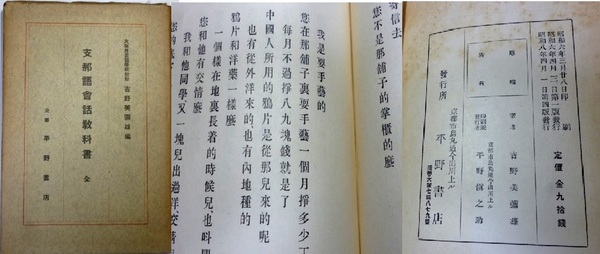 吉野美彌雄編
支那語會話敎科書 全
京都 平野書店
寄信去
您不是那舖子的掌櫃的麽
我是耍手藝的
您在那舖子裏耍手藝一個月掙多少工
每月不過掙八九塊錢就是了
中國人所用的鴉片是從那兒來的呢
也有從外洋來的也有內地種的
鴉片和洋藥一樣麽
一個樣在地裏長着的時候兒也呌
您和他有交情麽
我和他同學又一塊兒出過洋交
昭和六年三月廿八日印刷
昭和六年四月三日第一版發行
昭和八年四月一日第四版發行
定價金九拾錢
著者
吉野美彌雄
京都市烏丸通今出川上ル
平野
之助
發行所
京都市烏丸通今出川上ル
平野書店